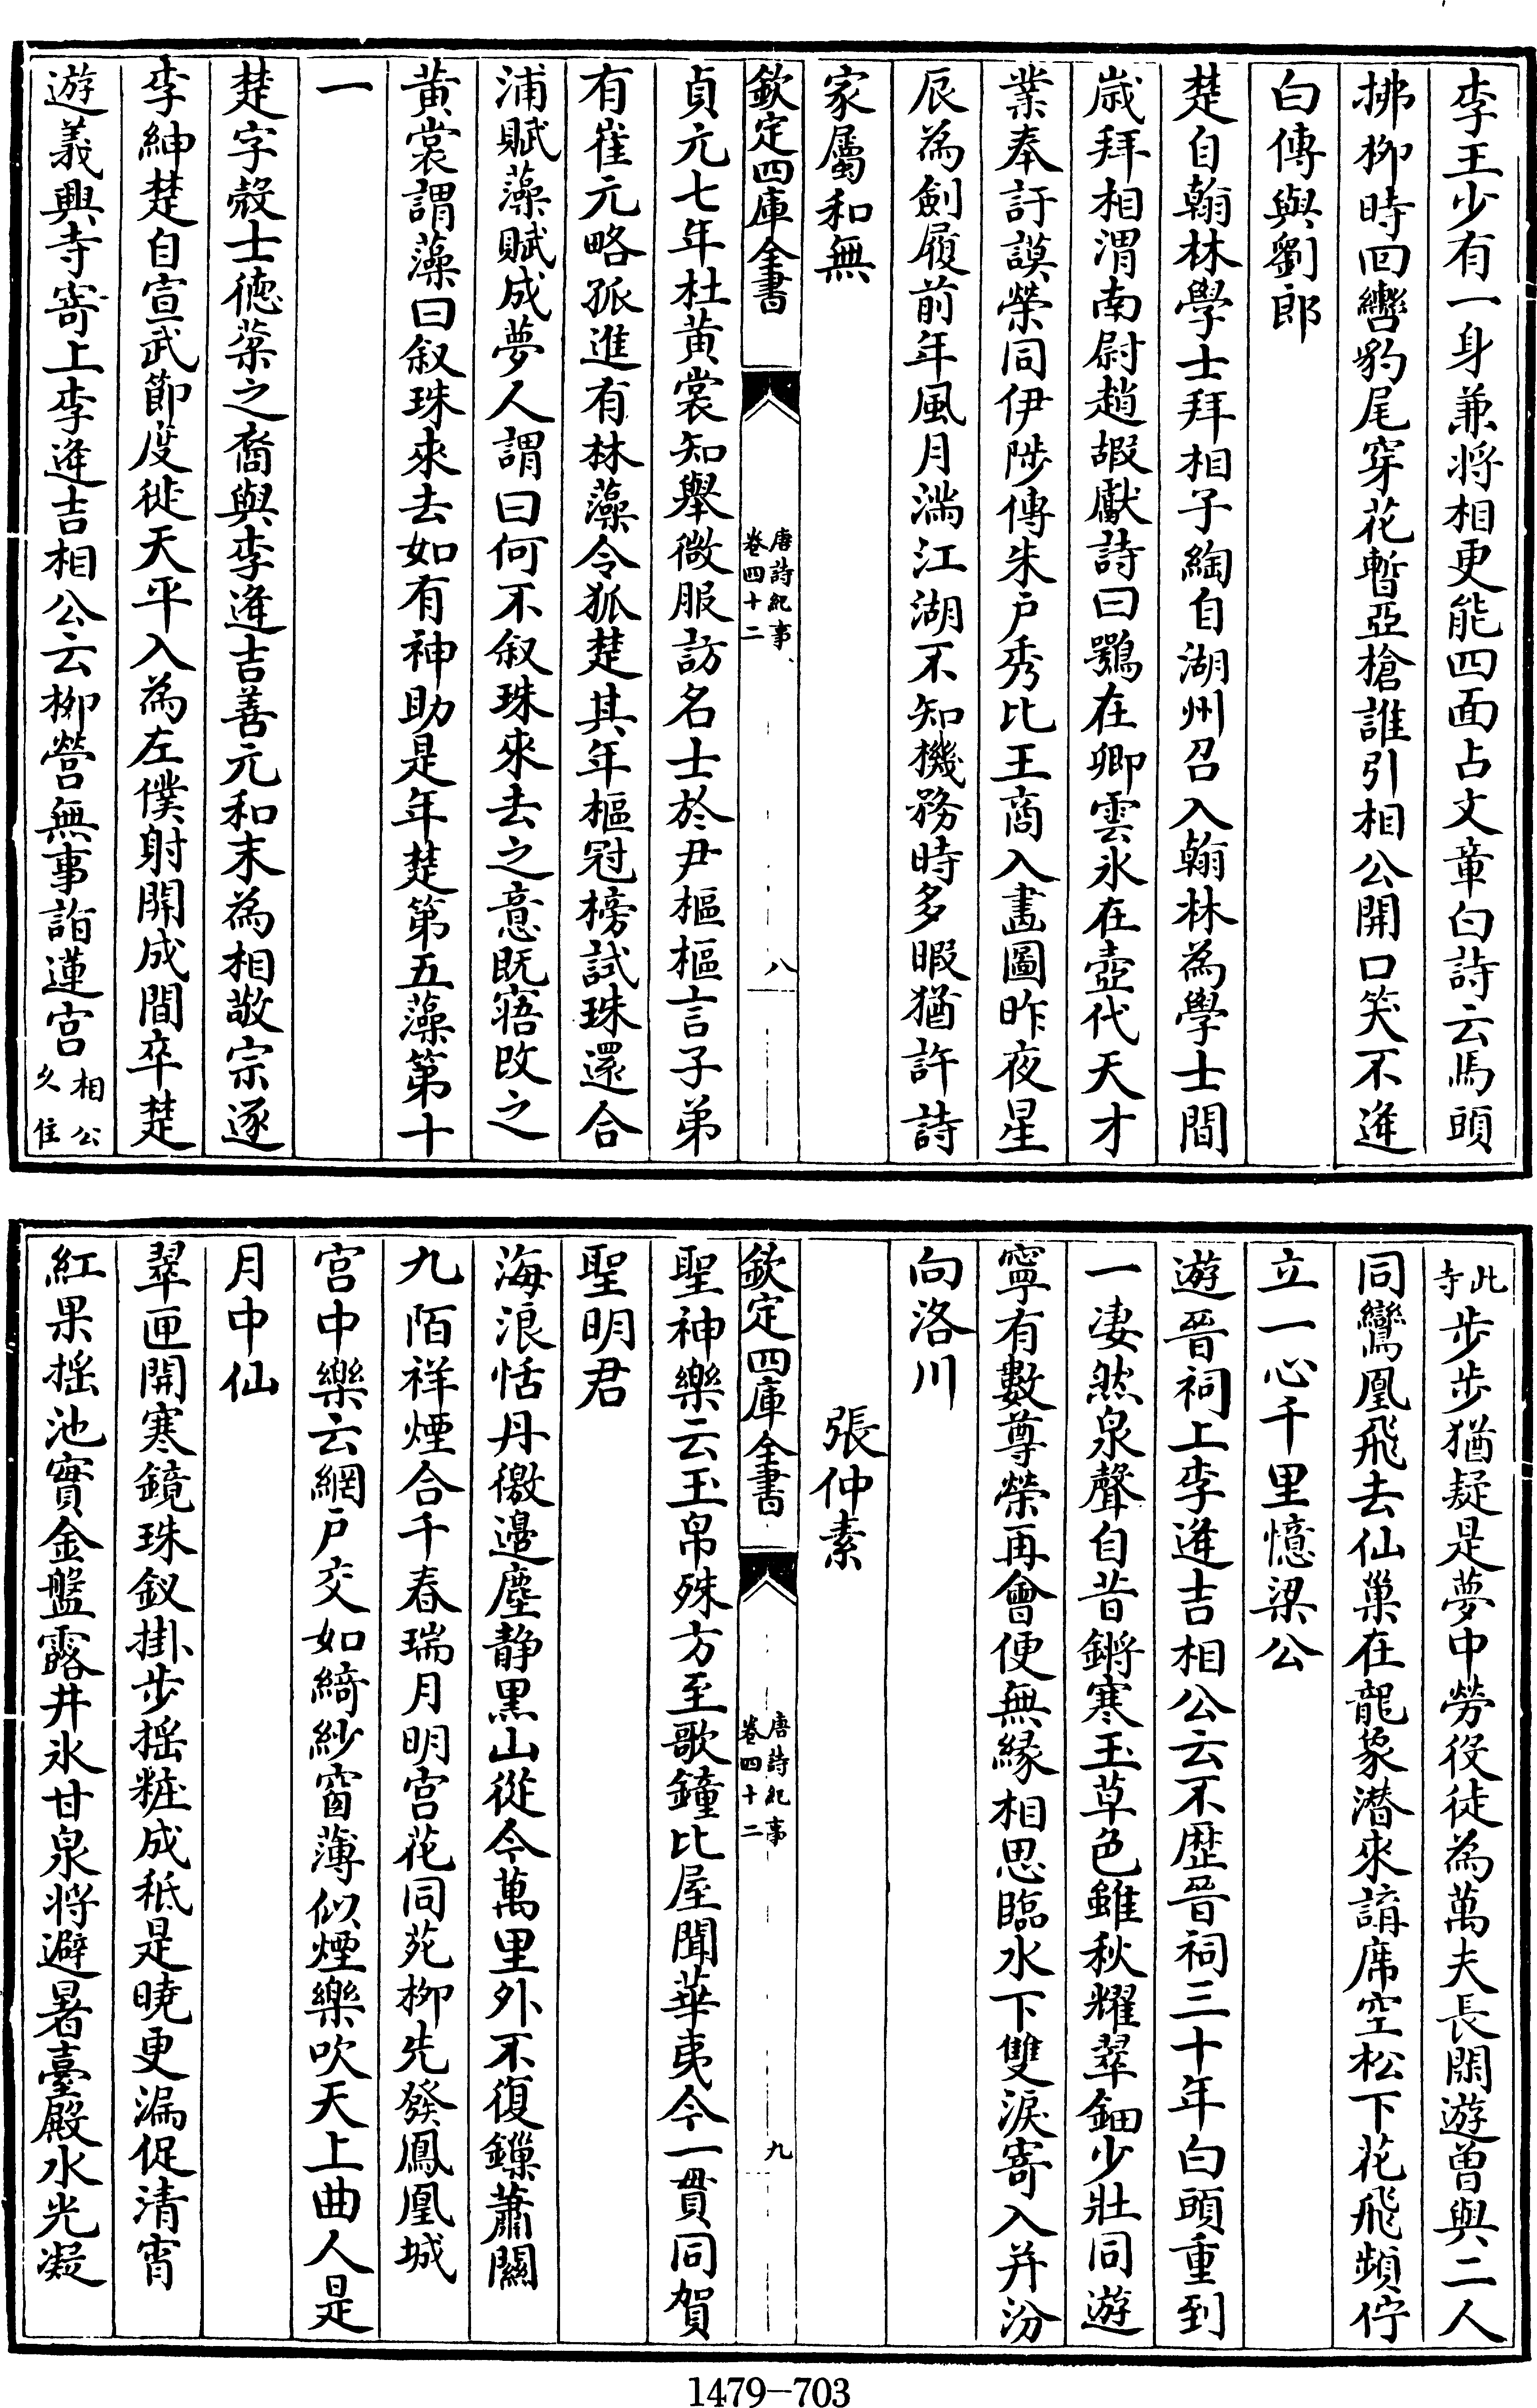 李王少有一身兼将相更能四面占文章白詩云馬頭
拂柳時回轡豹尾穿花暫亞槍誰引相公開口笑不逢
白傳與劉郎
楚自翰林學士拜相子綯自湖州召入翰林為學士間
歳拜相渭南尉趙嘏獻詩曰鶚在卿雲氷在壺代天才
業奉訏謨榮同伊陟傳朱户秀比王商入畫圖昨夜星
辰為劍履前年風月滿江湖不知機務時多暇猶許詩
家屬和無
欽定四庫全書
唐詩紀事
卷四十二
八
貞元七年杜黄裳知舉微服訪名士於尹樞樞言子弟
有崔元略孤進有林藻令狐楚其年樞冠榜試珠還合
浦賦藻賦成夢人謂曰何不叙珠來去之意既寤改之
黄裳謂藻曰叙珠來去如有神助是年楚第五藻第十
一
楚字殻士徳棻之裔與李逢吉善元和末為相敬宗逐
李紳楚自宣武節度徙天平入為左僕射開成間卒楚
遊義興寺寄上李逢吉相公云栁營無事詣蓮宫相公
久住
此
寺步步猶疑是夢中勞役徒為萬夫長閑遊曽與二人
同鸞凰飛去仙巢在龍象潜來講席空松下花飛頻佇
立一心千里憶梁公
遊晉祠上李逢吉相公云不歴晉祠三十年白頭重到
一凄然泉聲自昔鏘寒玉草色雖秋耀翠鈿少壯同遊
寧有數尊榮再會便無縁相思臨水下雙淚寄入并汾
向洛川
張仲素
欽定四庫全書
唐詩紀事
卷四十二
九
聖神樂云玉帛殊方至歌鐘比屋聞華夷今一貫同賀
聖明君
海浪恬丹徼邉塵靜黒山從今萬里外不復鏁蕭關
九陌祥煙合千春瑞月明宫花同苑栁先發鳳凰城
宫中樂云網戸交如綺紗窗薄似煙樂吹天上曲人是
月中仙
翠匣開寒鏡珠釵掛步揺粧成秪是曉更漏促清宵
紅果揺池實金盤露井氷甘泉将避暑臺殿水光凝
1479-703